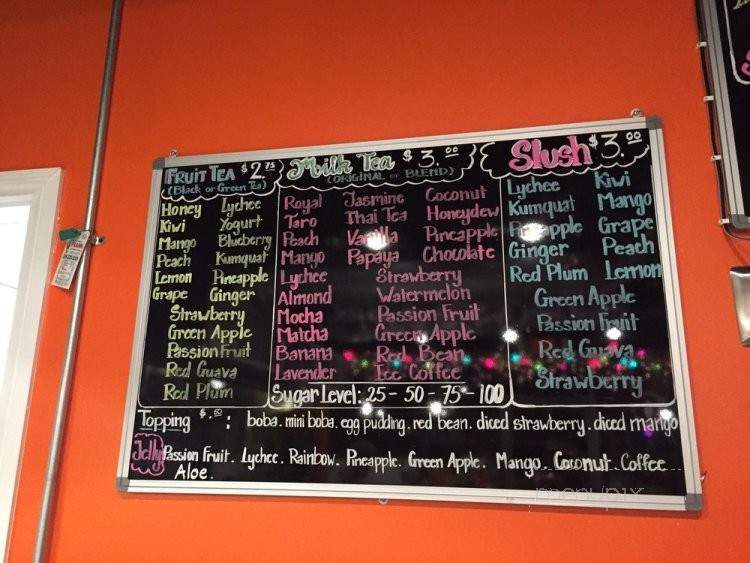 FRUIT TEA $2.75
(Black or Green Tea)
Honey Lychee
Kiwi Yogurt
Mango Blueberry
Peach Kumquat
Lemon Pineapple
Grape Ginger
Strawberry
Green Apple
Passion Fruit
Red Guava
Red Plum
Milk Tea $3.00
(ORIGINAL or BLEND)
Royal Jasmine Coconut
Taro Thai Tea Honeydew
Peach Vanilla Pineapple
Mango Papaya Chocolate
Lychee Strawberry
Almond Watermelon
Mocha Passion Fruit
Matcha Green Apple
Banana Red Bean
Lavender Ice Coffee
Sugar Level: 25 - 50 - 75 - 100
Slush $3.00
Lychee Kiwi
Kumquat Mango
Pineapple Grape
Ginger Peach
Red Plum Lemon
Green Apple
Passion Fruit
Red Guava
Strawberry
Topping $.50 : boba. mini boba. egg pudding. red bean. diced strawberry. diced mango
Jelly Passion Fruit. Lychee. Rainbow. Pineapple. Green Apple. Mango. Coconut. Coffee....
Aloe.